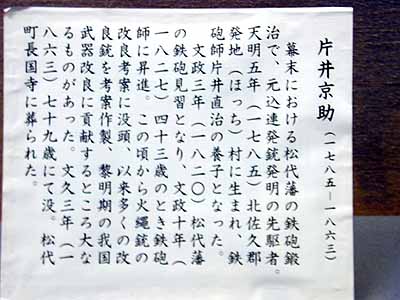 片井京助(一七八五―一八六三)
幕末における松代藩の鉄砲鍛
治で、元込連発銃発明の先駆者。
天明五年(一七八五)北佐久郡
発地(ほっち)村に生まれ、鉄
砲師片井直治の養子となった。
文政三年(一八二〇)松代藩
の鉄砲見習となり、文政十年(
一八二七)四十三歳のとき鉄砲
師に昇進。この頃から火縄銃の
改良考案に没頭、以来多くの改
良銃を考案作製、黎明期の我国
武器改良に貢献するところ大な
るものがあった。文久三年(一
八六三)七十九歳にて没。松代
町長国寺に葬られた。